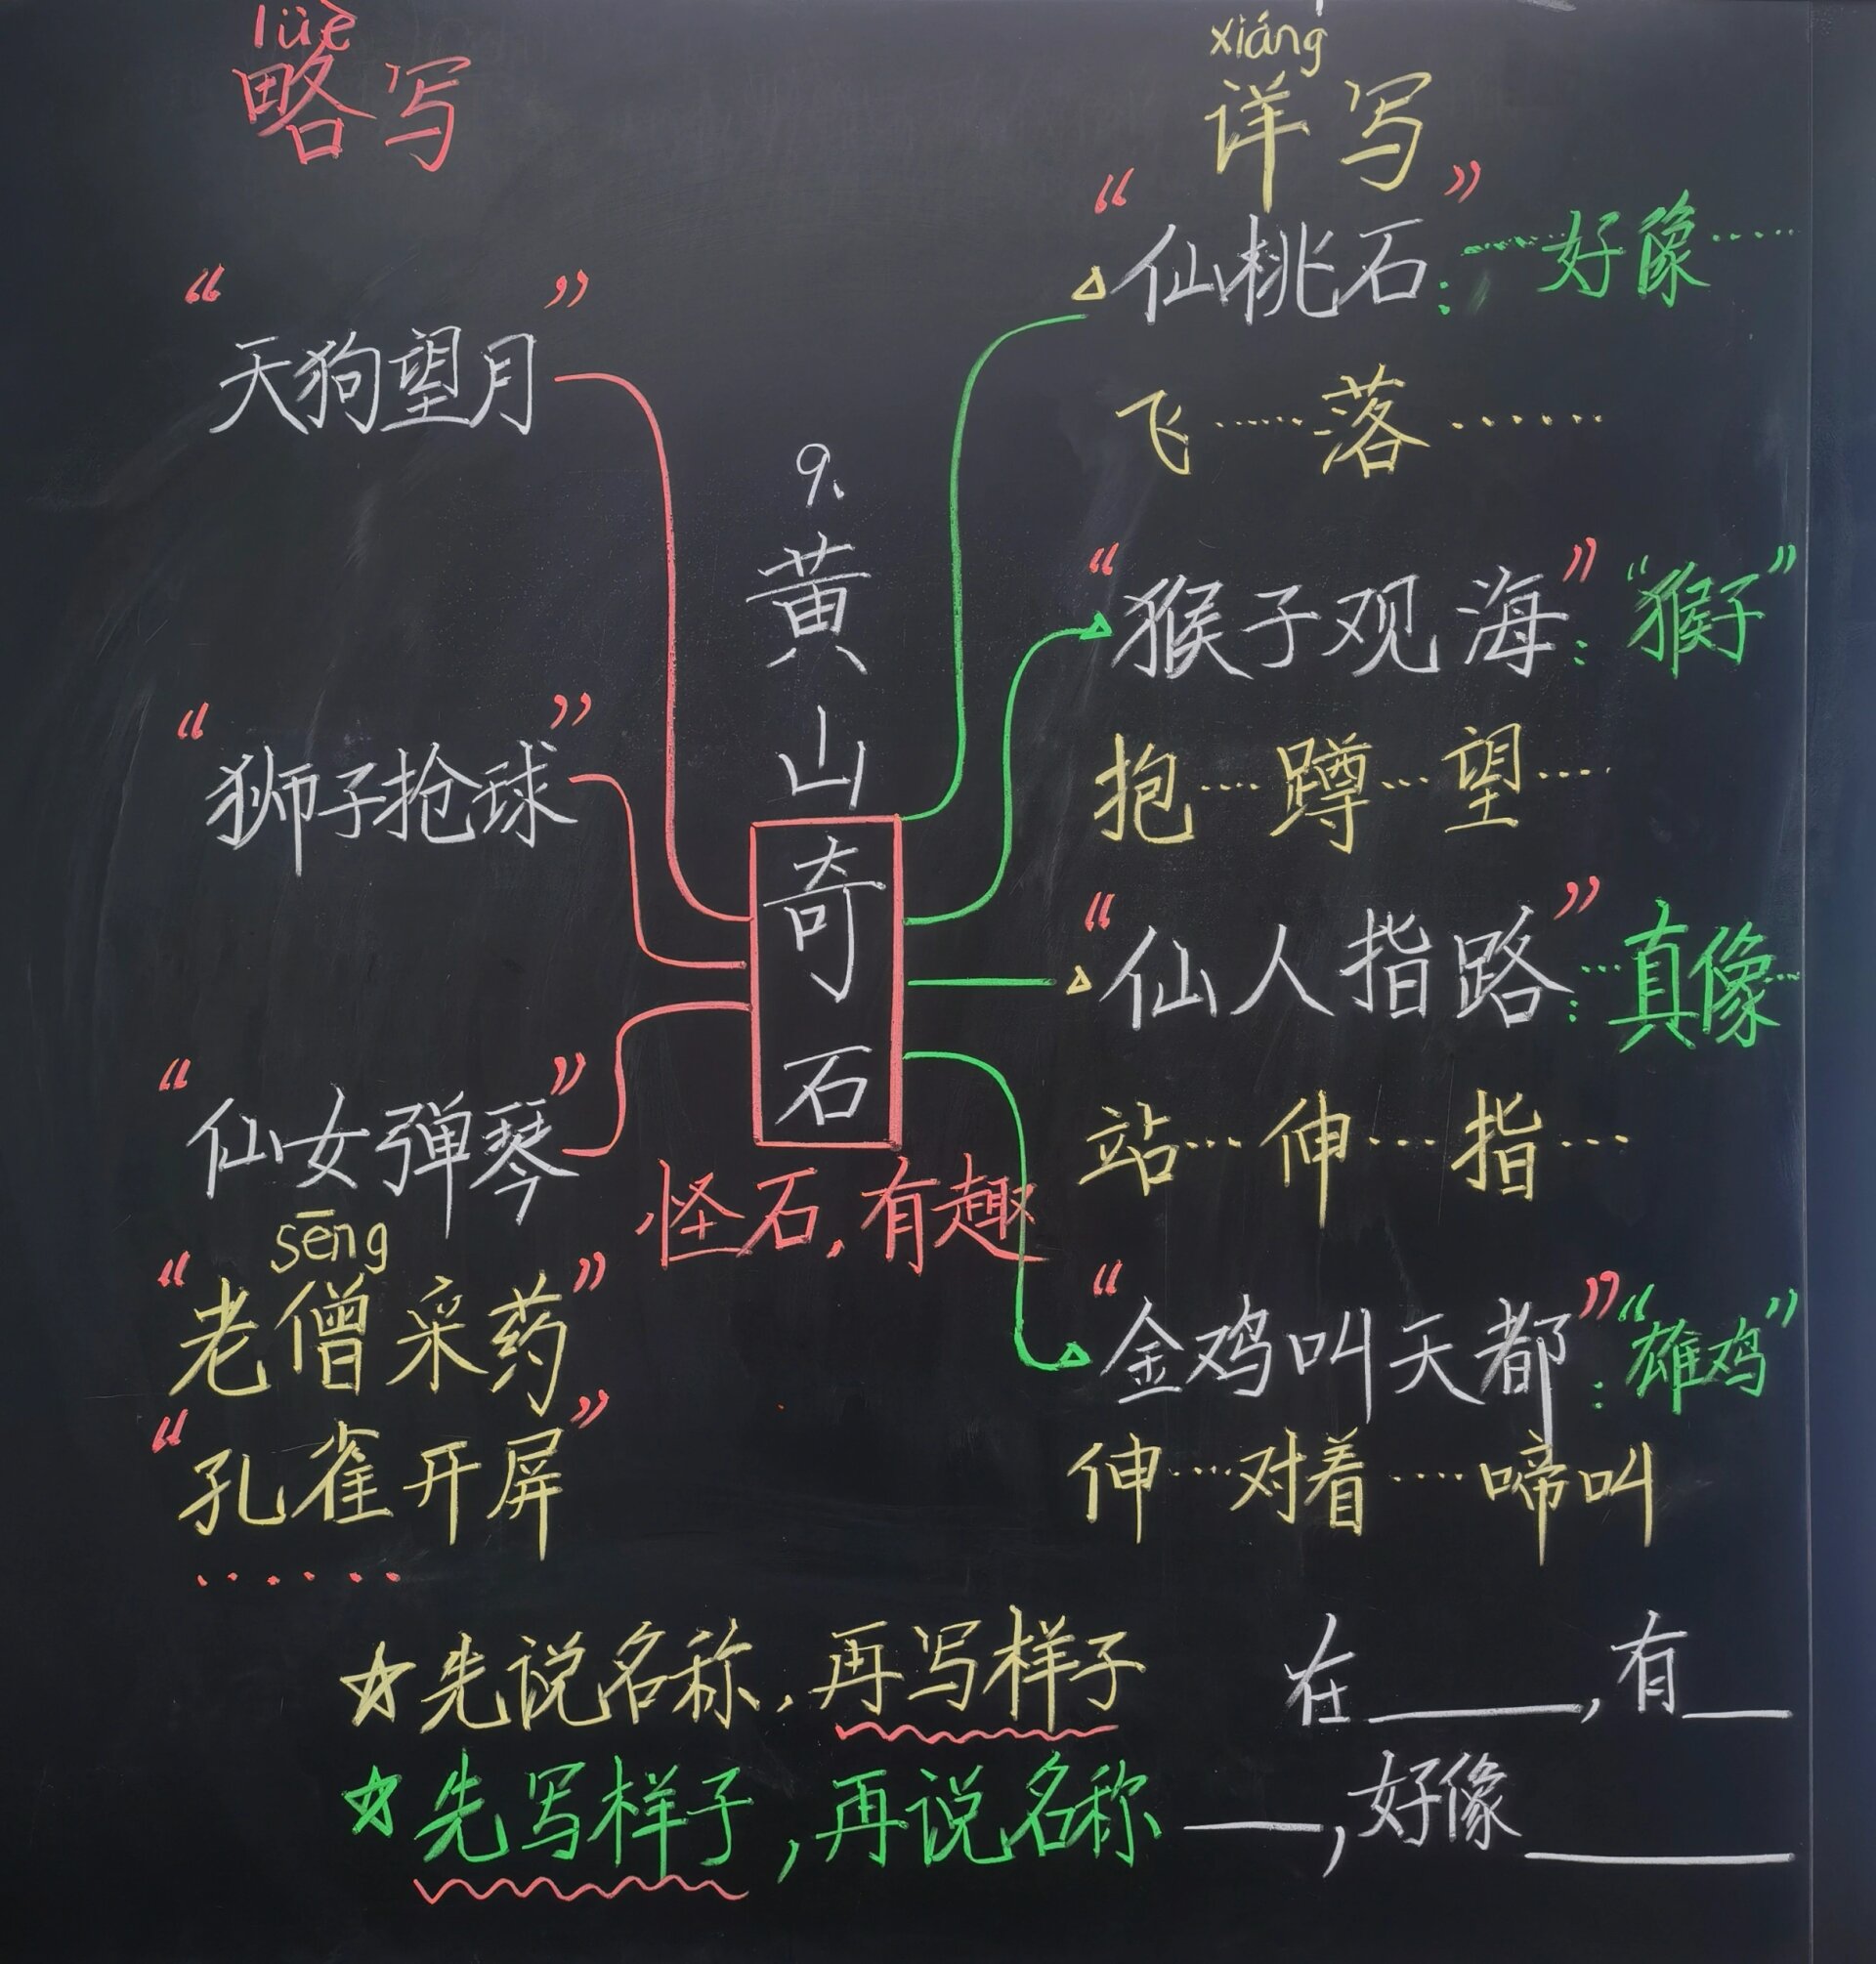 lüè
略写
“天狗望月”
“狮子抢球”
“仙女弹琴”
sēng
“老僧采药”
“孔雀开屏”
······
9.黄山奇石
怪石,有趣
xiáng
详写
“仙桃石”:……好像……
飞……落……
“猴子观海”:“猴子”
抱……蹲…望……
“仙人指路”:…真像…
站…伸…指…
“金鸡叫天都”:“雄鸡”
伸……对着……啼叫
☆先说名称,再写样子
☆先写样子,再说名称
在______,有___
____,好像______